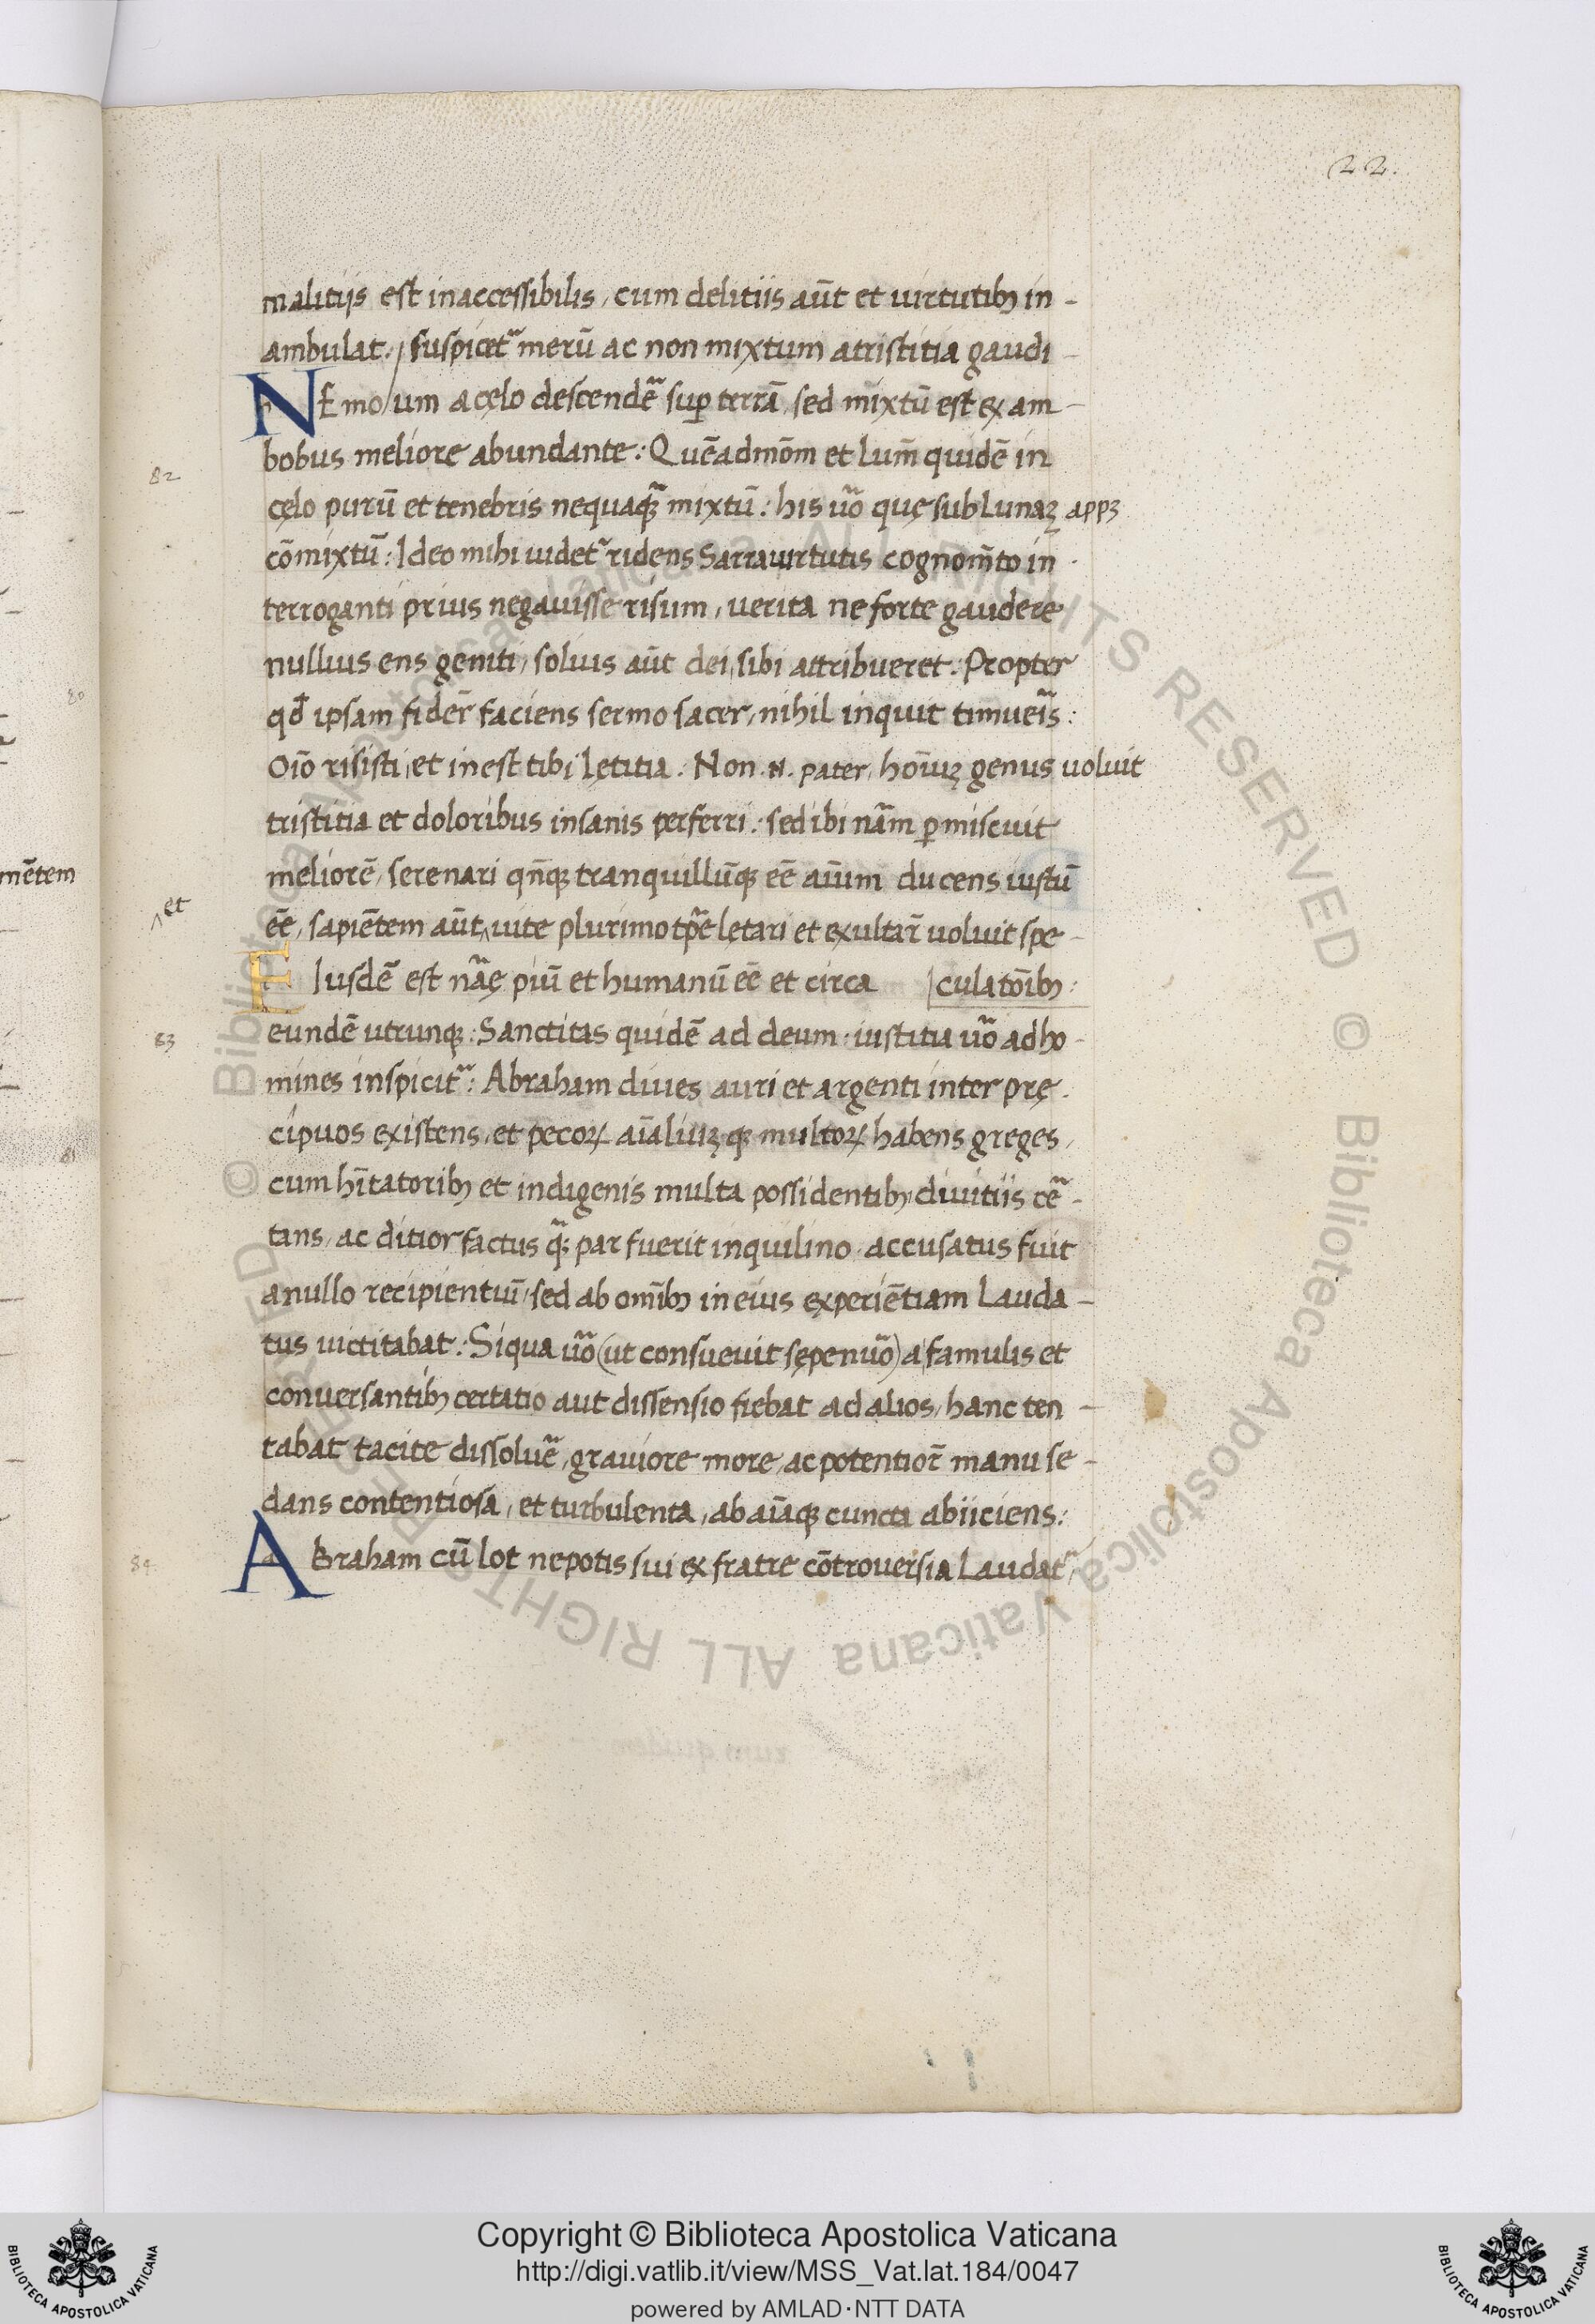 22.
malitijs est inaccessibilis, cum delitiis aūt et uirtutibꝫ in-
ambulat. / suspicet᷑ merū ac non mixtum a tristitia gaudi-
NEmo/um a cęlo descendē sup terrā, sed mixtū est ex am-
bobus meliore abundante: Quēadmōm et lum̄ quidē in
82
cęlo purū et tenebris nequaq̃ mixtū: his ũo quę sub lunaꝝ appꝫ
cōmixtū: Ideo mihi uidet᷑ ridens Sarra uirtutis cognom̄to in-
terroganti prius negauisse risum, uerita ne forte gaudere
nullius ens geniti, solius aūt dei, sibi attribueret: Propter
80
qd̄ ipsam fider̄ faciens sermo sacer, nihil inquit timueĩs:
Oīo risisti, et inest tibi lętitia. Non .N. pater, hoīuꝝ genus uoluit
tristitia et doloribus insanis perferri: sed ibi nãm ꝑmiscuit
meliorē, serenari qn̄qꝫ tranquillūqꝫ eē aīum ducens iustū
mētem
et
eē, sapiētem aūt, uite plurimo tp̃e letari et exultar̄ uoluit spe-
EIusdē est nãę piū et humanū eē et circa culatōibꝫ:
83
eundē utrunqꝫ: Sanctitas quidē ad deum. iustitia ũo ad ho-
mines inspicit᷑: Abraham diues auri et argenti inter pre-
cipuos existens, et pecoꝝ aīaliuꝝqꝫ multoꝝ habens greges,
81
cum hītatoribꝫ et indigenis multa possidentibꝫ diuitiis cẽ-
tans, ac ditior factus q̃ꝫ par fuerit inquilino. accusatus fuit
a nullo recipientuī, sed ab omībꝫ in eius experiētiam lauda-
tus uictitabat: Siqua ũo (ut consueuit sępenũo) a famulis et
conuersantibꝫ certatio aut dissensio fiebat ad alios, hanc ten-
tabat tacite dissoluẽ, grauiore more, ac potentior̄ manu se-
dans contentiosa, et turbulenta, ab aīaqꝫ cuncta abiiciens:
84
ABraham cū lot nepotis sui ex fratre cōtrouersia laudat᷑,
Copyright © Biblioteca Apostolica Vaticana
http://digi.vatlib.it/view/MSS_Vat.lat.184/0047
powered by AMLAD·NTT DATA
BIBLIOTECA APOSTOLICA VATICANA
BIBLIOTECA APOSTOLICA VATICANA
© Biblioteca Apostolica Vaticana ALL RIGHTS RESERVED © Biblioteca Apostolica Vaticana ALL RIGHTS RESERVED